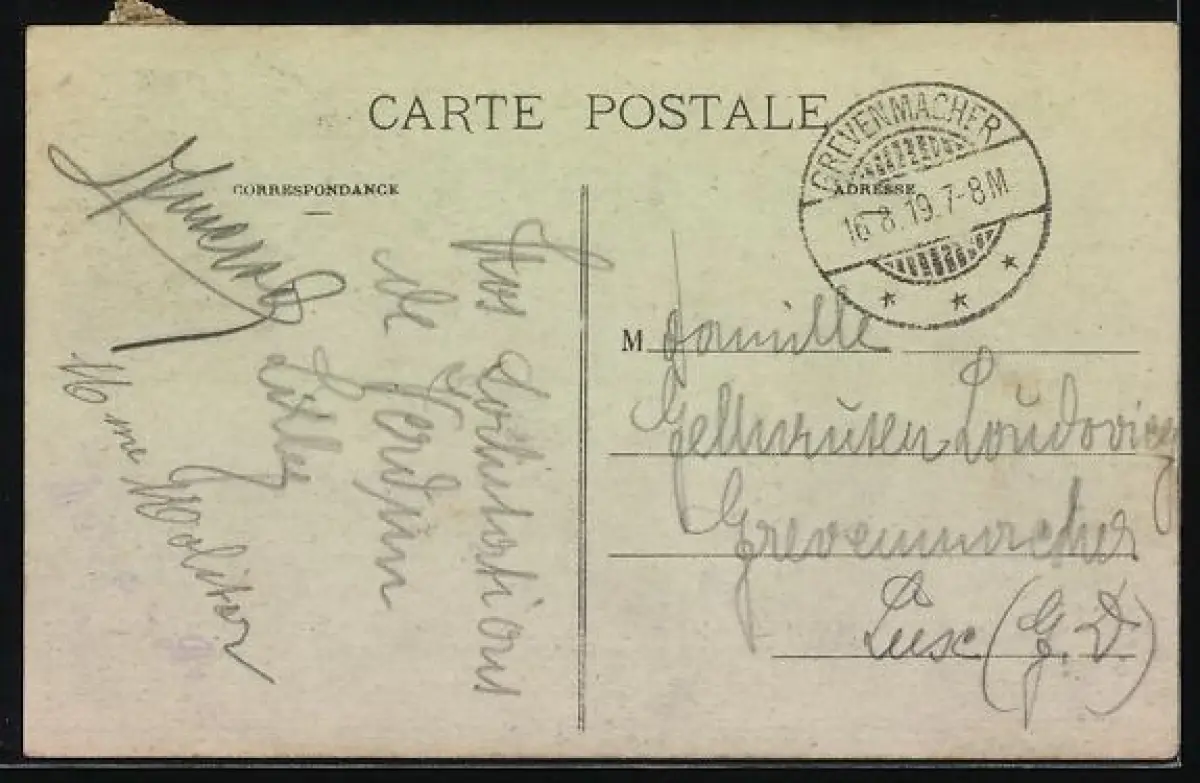 CARTE POSTALE
CORRESPONDANCE
ADRESSE
GREVENMACHER
16.8.19.7-8M
Nos Salutations
de Verdun
Mme Molitor
M Famille
Gellnrusen Loudovicy
Grevenmacher
Luxe (G. D.)